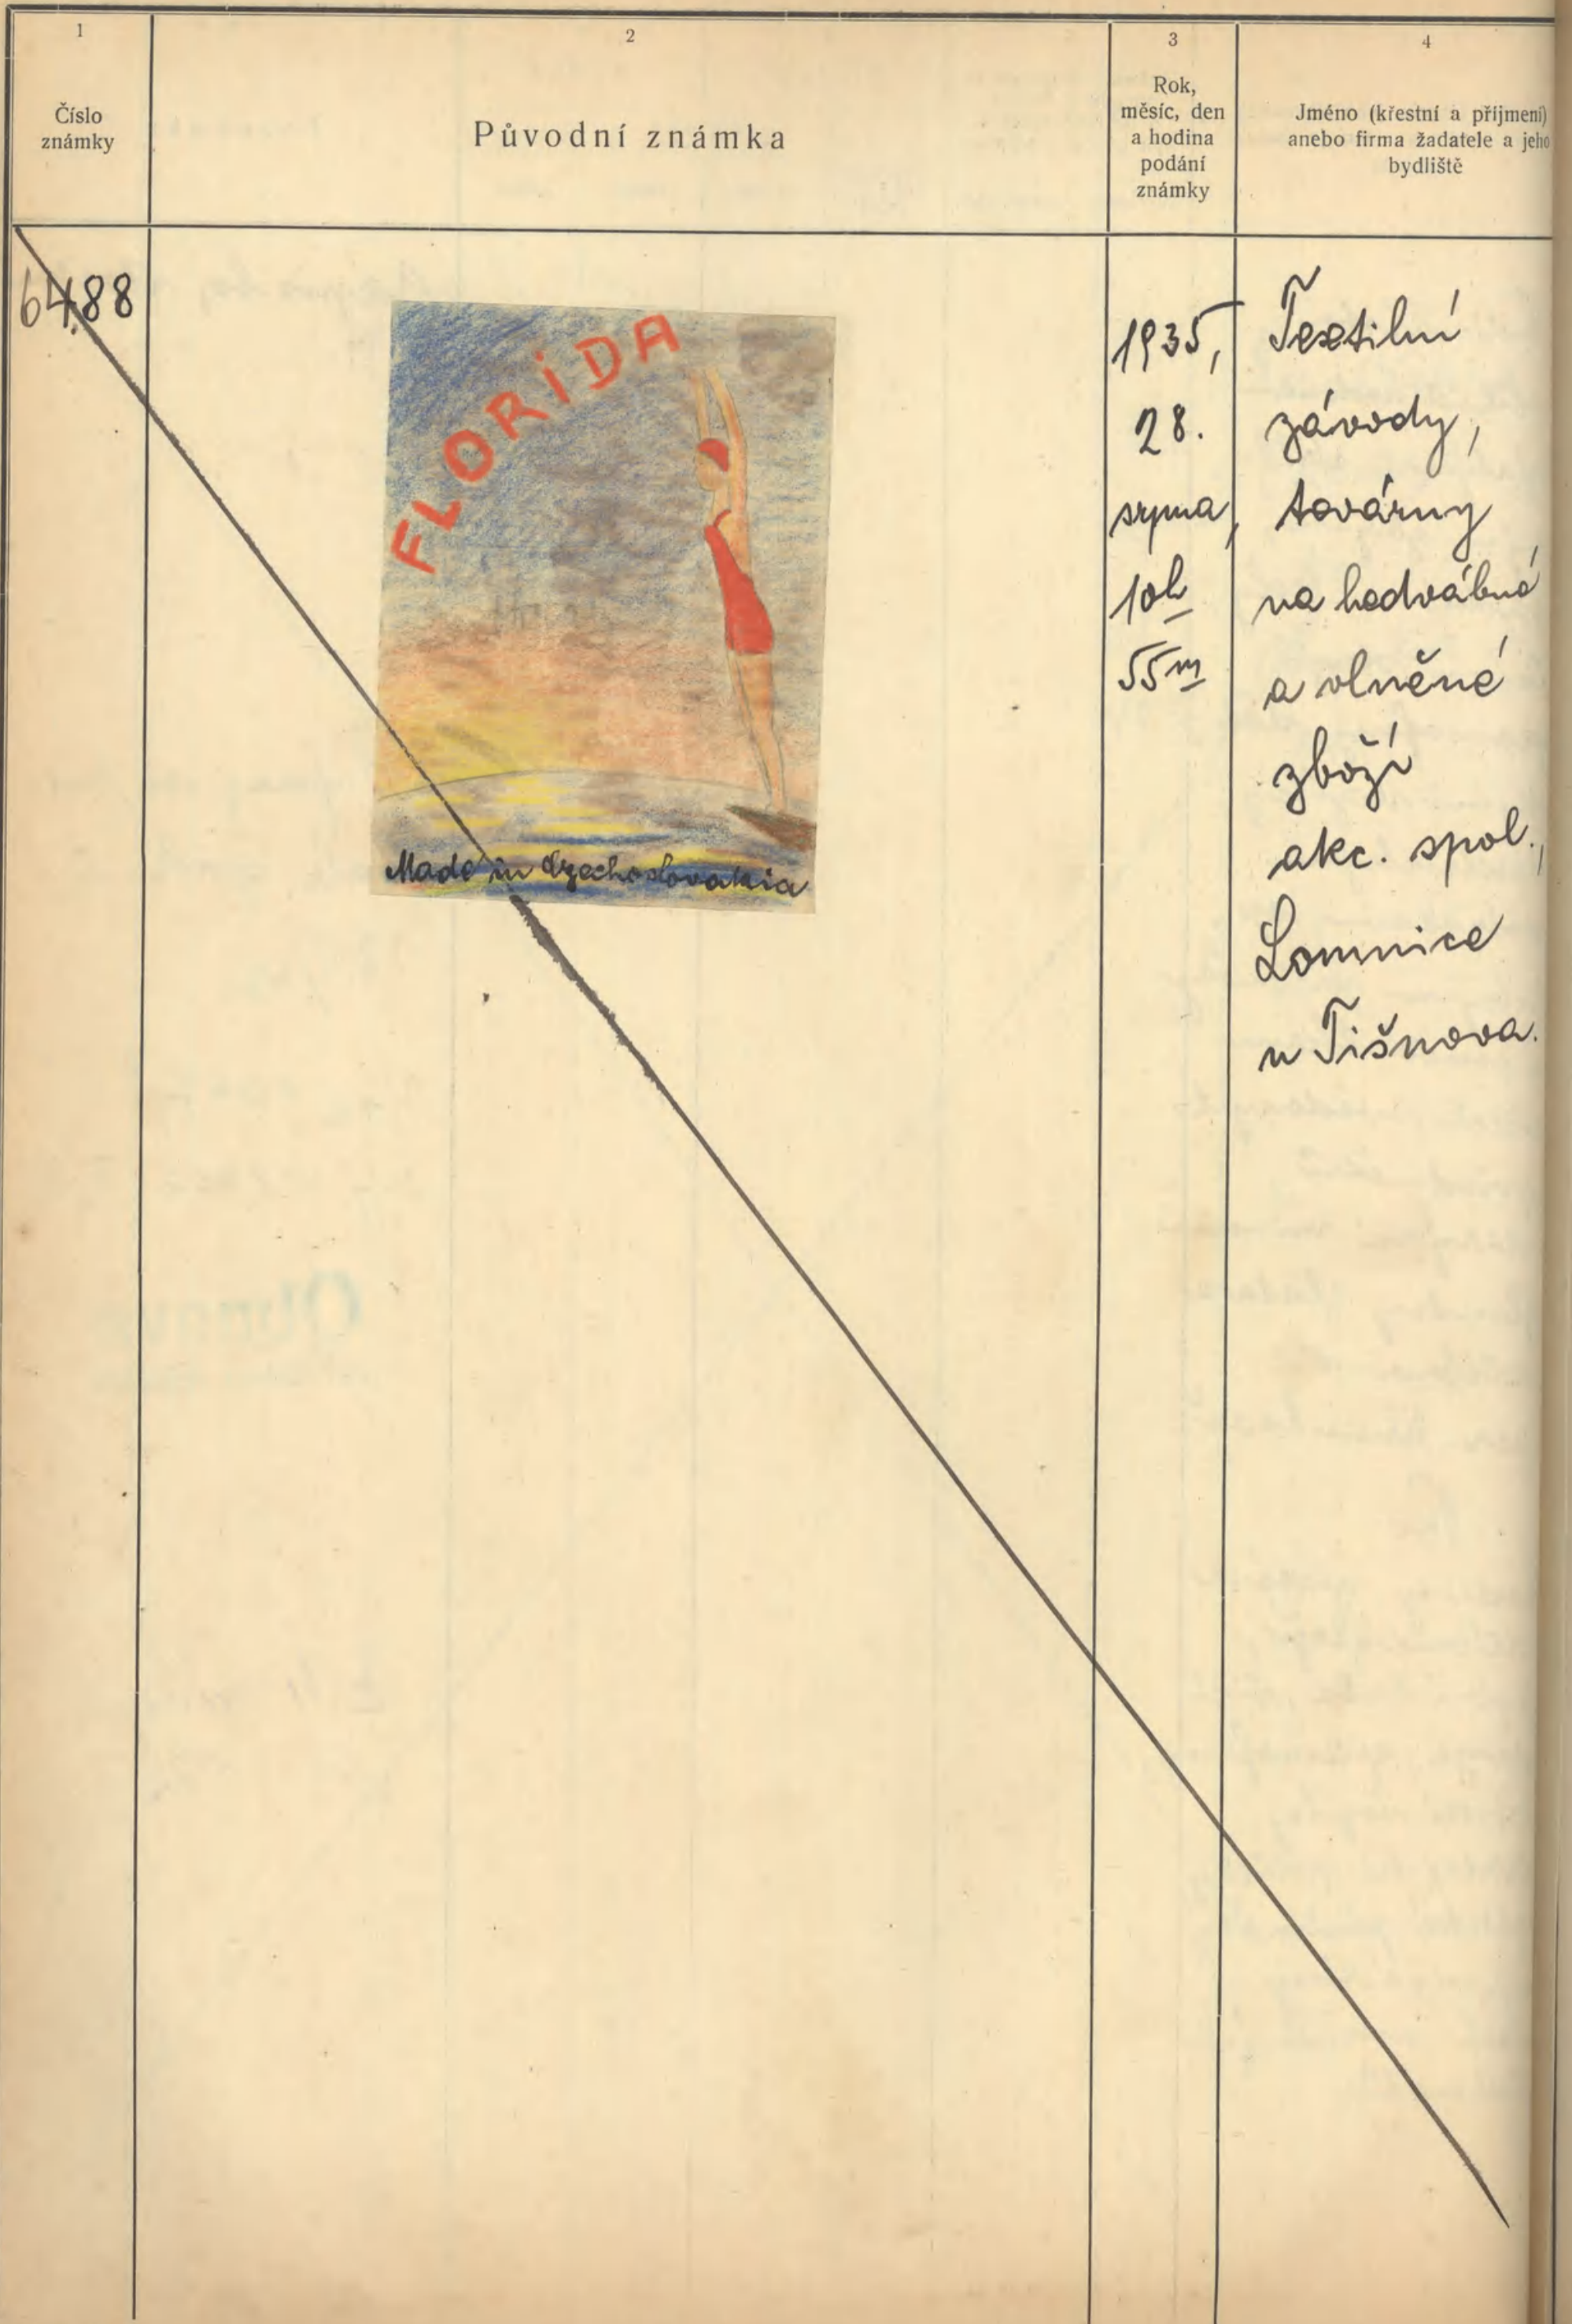 1
Číslo
známky
2
Původní známka
3
Rok,
měsíc, den
a hodina
podání
známky
4
Jméno (křestní a příjmení)
anebo firma žadatele a jeho
bydliště
6488
FLORIDA
Made in Czechoslovakia
1935,
28.
srpna,
10h
55m
Textilní
závody,
továrny
na hedvábné
a vlněné
zboží
akc. spol.,
Lomnice
u Tišnova.